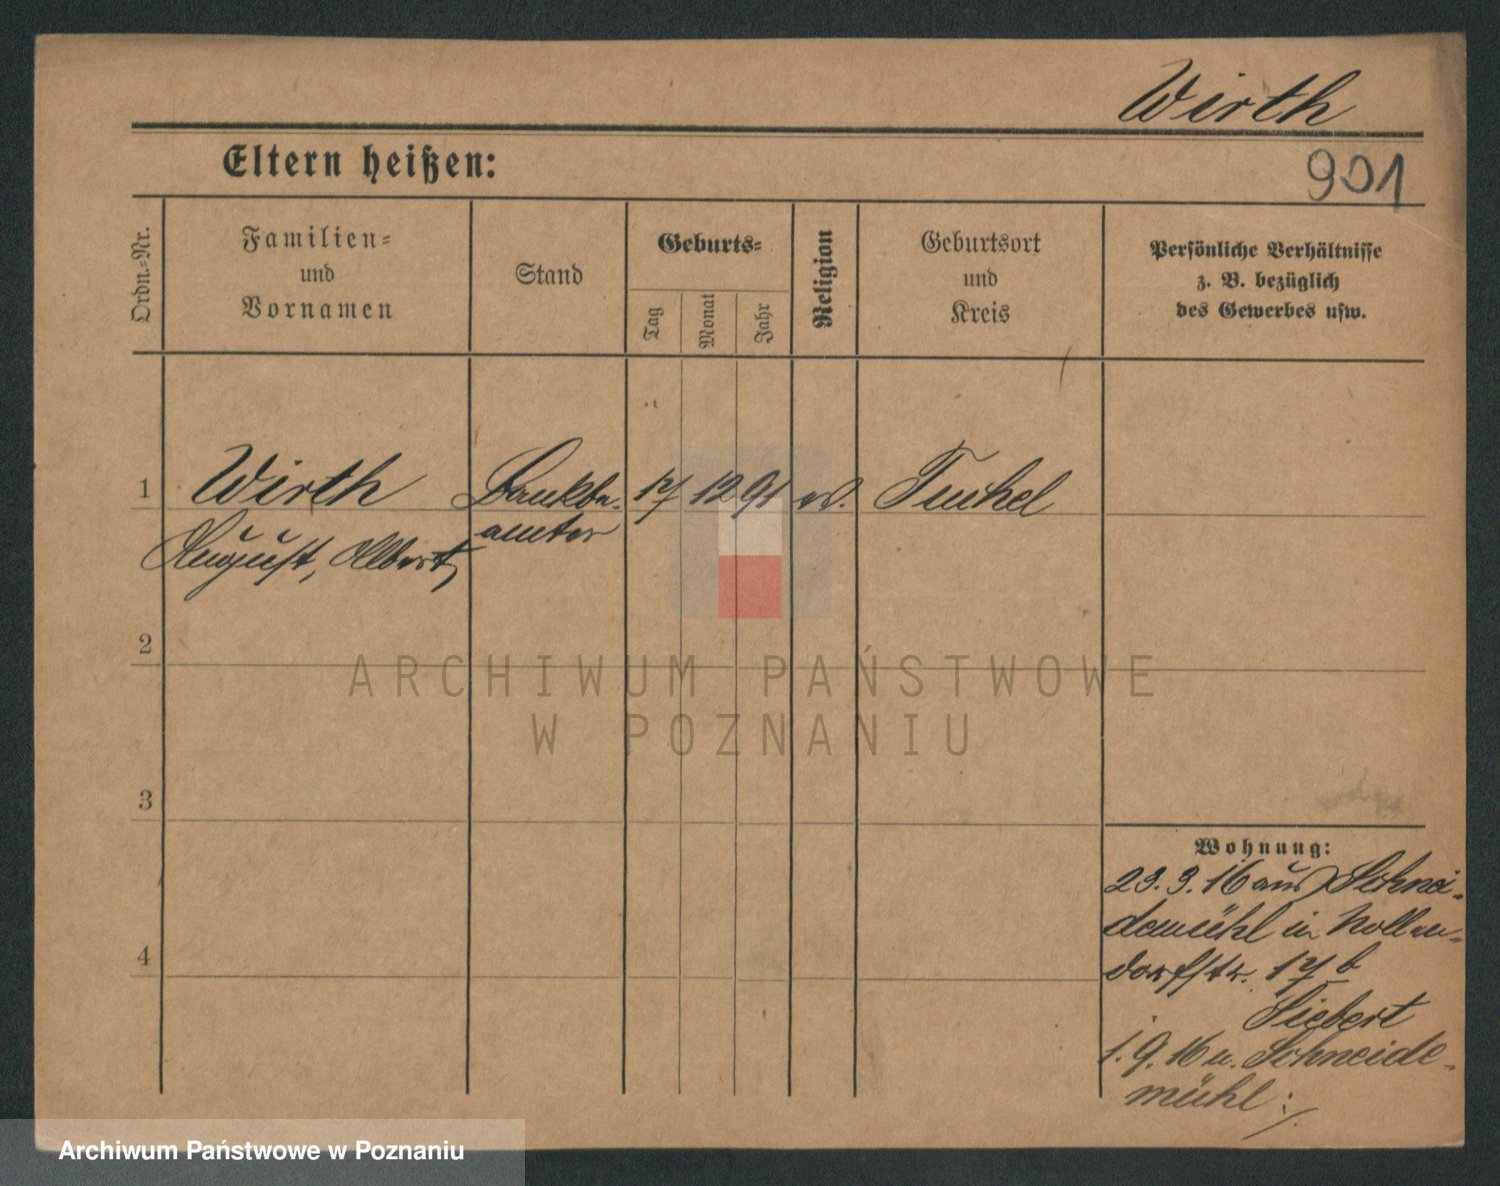 Wirth
Eltern heißen:
901
Ordn.-Nr.
Familien-
und
Vornamen
Stand
Geburts-
Tag
Monat
Jahr
Religion
Geburtsort
und
Kreis
Persönliche Verhältnisse
z. B. bezüglich
des Gewerbes usw.
1
Wirth
Bankbe-
17
12
91
ev.
Tuchel
August, Albert,
amter
2
ARCHIWUM PAŃSTWOWE
W POZNANIU
3
Wohnung:
23. 3. 16 aus Schnei-
demühl in Nollen-
4
dorfstr. 17 b
Siebert
1. 9. 16 n. Schneide-
mühl
Archiwum Państwowe w Poznaniu